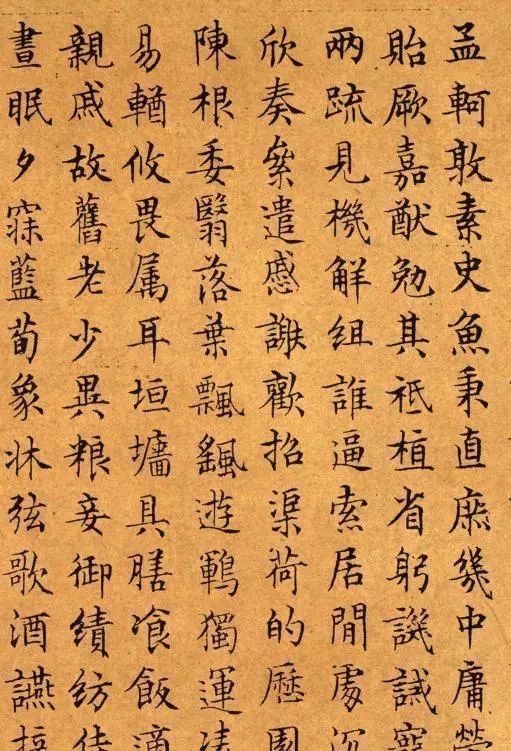 孟軻敦素史魚秉直庶幾中庸
貽厥嘉猷勉其祗植省躬譏誡
兩疏見機解組誰逼索居間處
欣奏累遣慼謝歡招渠荷的歷
陳根委翳落葉飄颻遊鵾獨運
易輶攸畏属耳垣墻具膳飡飯
親戚故舊老少異粮妾御績紡
晝眠夕寐藍荀象牀弦歌酒讌